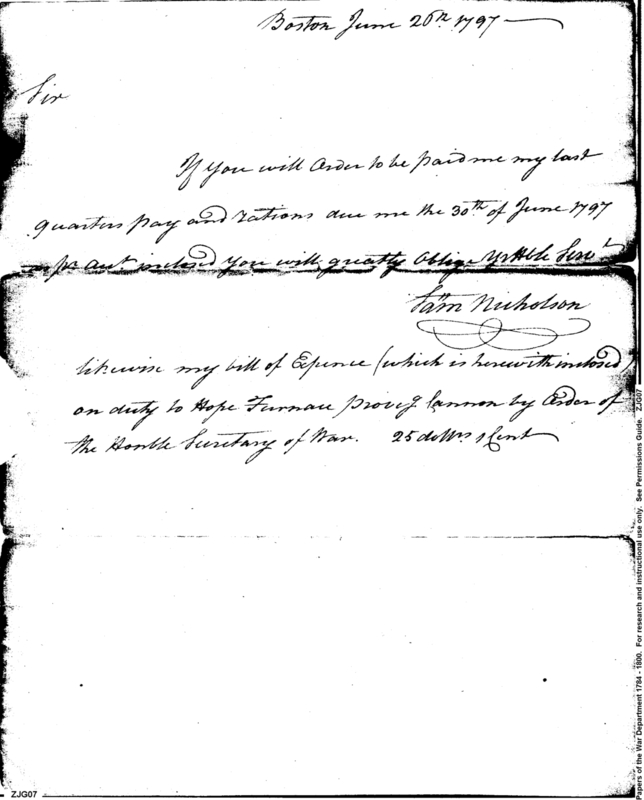 Boston June 26th 1797
Sir
If you will Order to be paid me my last
quarters pay and rations due me the 30th of June 1797
as pr Aut inclosed you will greatly Oblige Yr Hble Servt
Sam Nicholson
likewise my bill of Epence (which is herewith inclosed)
on duty to Hope Furnace proveg Cannon by Order of
the Honble Secretary of War. 25 dollrs 1 Cent
ZJG07
Papers of the War Department 1784 - 1800. For research and instructional use only. See Permissions Guide. ZJG07